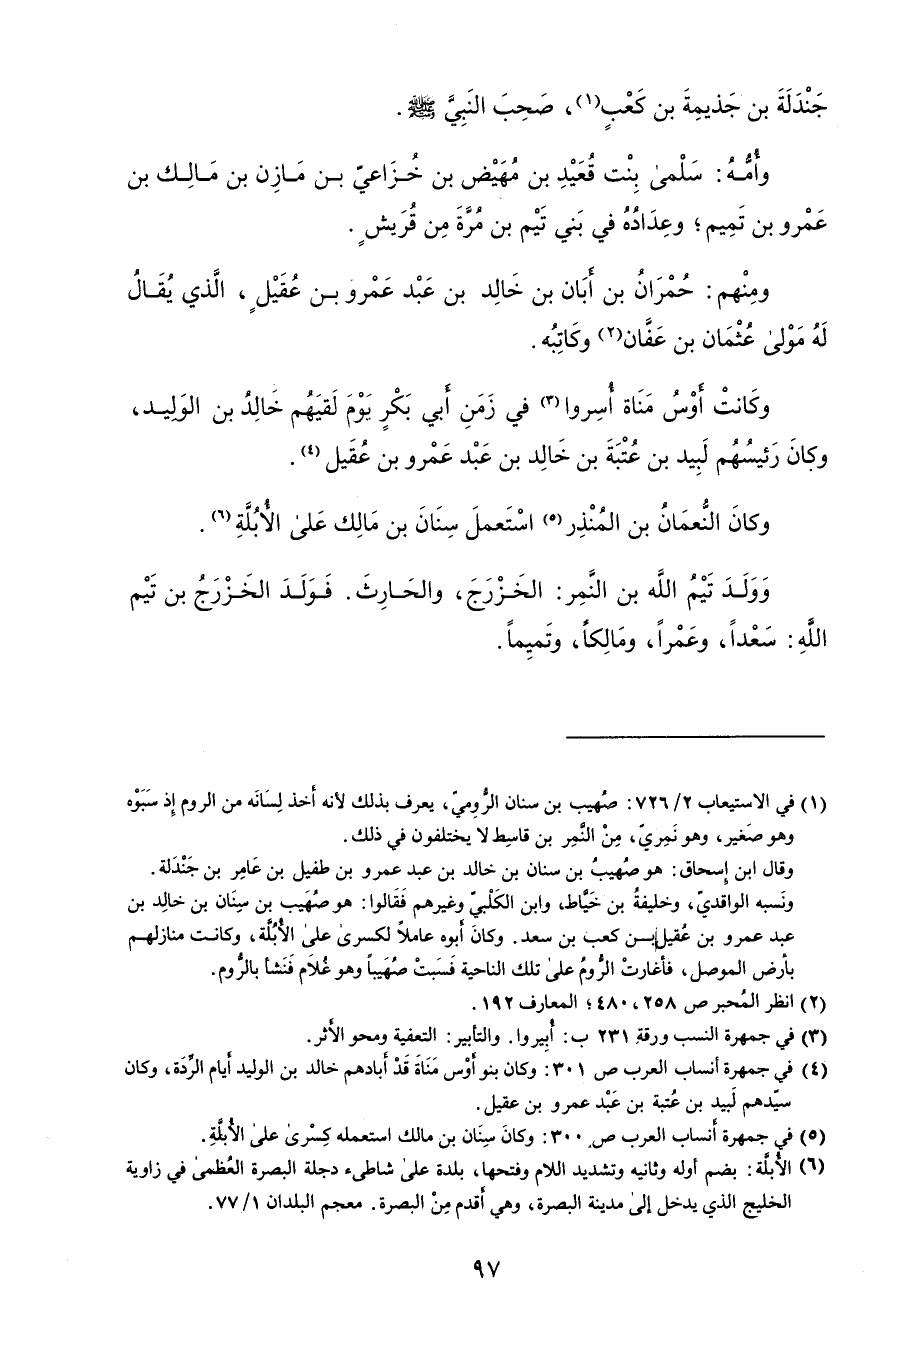 جَنْدَلَةَ بن جَذيمِةَ بن كَعْبٍ(١)، صَحِبَ النَبِيَّ ﷺ.
وأُمُّهُ: سَلْمىٰ بِنْت قُعَيْدِ بن مُهَيْض بن خُزَاعيّ بن مَازِن بن مَالِك بن
عَمْرو بن تَمِيم؛ وعِدَادُهُ في بَني تَيْم بن مُرَّةَ مِن قُرَيش.
ومِنْهم: حُمْرَانُ بن أَبَان بن خَالِد بن عَبْد عَمْرو بن عُقَيْلٍ، الَّذي يُقَالُ
لَهُ مَوْلىٰ عُثْمَان بن عَفَّان(٢) وكَاتِبُه.
وكَانتْ أَوْسُ مَنَاة أُسِروا(٣) في زَمَنِ أَبي بَكْرٍ يَوْمَ لَقيَهُم خَالِدُ بن الوَلِيد،
وكانَ رَئيسُهُم لَبِيد بن عُتْبَةَ بن خَالِد بن عَبْد عَمْرو بن عُقَيل(٤).
وكانَ النُّعمَانُ بن المُنْذِر(٥) اسْتَعملَ سِنَانَ بن مَالِك عَلىٰ الأُبُلَّةِ(٦).
وَوَلَدَ تَيْمُ اللَّه بن النَّمِر: الخَزْرَجَ، والحَارِثَ. فَوَلَدَ الخَزْرَجُ بن تَيْم
اللَّهِ: سَعْداً، وعَمْراً، ومَالِكاً، وتَميماً.
(١) في الاستيعاب ٧٢٦/٢: صُهيب بن سنان الرُّوميّ، يعرف بذلك لأنه أخذ لِسَانَه من الروم إذ سَبَوْه
وهو صَغير، وهو نَمِريّ، مِنْ النَّمِر بن قاسِط لا يختلفون في ذلك.
وقال ابن إسحاق: هو صُهيبُ بن سنان بن خالد بن عبد عمرو بن طفيل بن عَامِر بن جَنْدَلة.
ونَسبه الواقديّ، وخليفةُ بن خَيَّاط، وابن الكَلْبيّ وغيرهم فَقَالوا: هو صُهَيْب بن سِنَان بن خالِد بن
عبد عمرو بن عُقيل بن كعب بن سعد. وكانَ أبوه عاملاً لكسرىٰ علىٰ الأُبُلَّة، وكانت منازلهم
بأرض الموصل، فأغارتْ الرُّومُ علىٰ تلك الناحية فَسَبتْ صُهَيباً وهو غُلَام فَنَشأ بالرُّوم.
(٢) انظر المُحبر ص ٢٥٨، ٤٨٠؛ المعارف ١٩٢.
(٣) في جمهرة النسب ورقة ٢٣١ ب: أُبيروا. والتأبير: التعفية ومحو الأثر.
(٤) في جمهرة أنساب العرب ص ٣٠١: وكان بنو أوْس مَنَاةَ قَدْ أبادهم خالد بن الوليد أيام الرِّدَة، وكان
سيّدهم لَبيد بن عُتبة بن عَبْد عمرو بن عقيل.
(٥) في جمهرة أنساب العرب ص ٣٠٠: وكانَ سِنَان بن مالك استعمله كِسْرىٰ علىٰ الأبلَّةِ.
(٦) الأبلَّة: بضم أوله وثانيه وتشديد اللام وفتحها، بلدة علىٰ شاطىء دجلة البصرة العُظمىٰ في زاوية
الخليج الذي يدخل إلىٰ مدينة البصرة، وهي أقدم مِنْ البصرة. معجم البلدان ٧٧/١.
٩٧